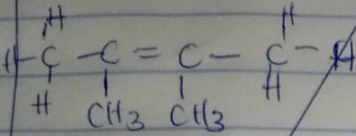 H H
H - C - C = C - C - H
H H
CH3 CH3